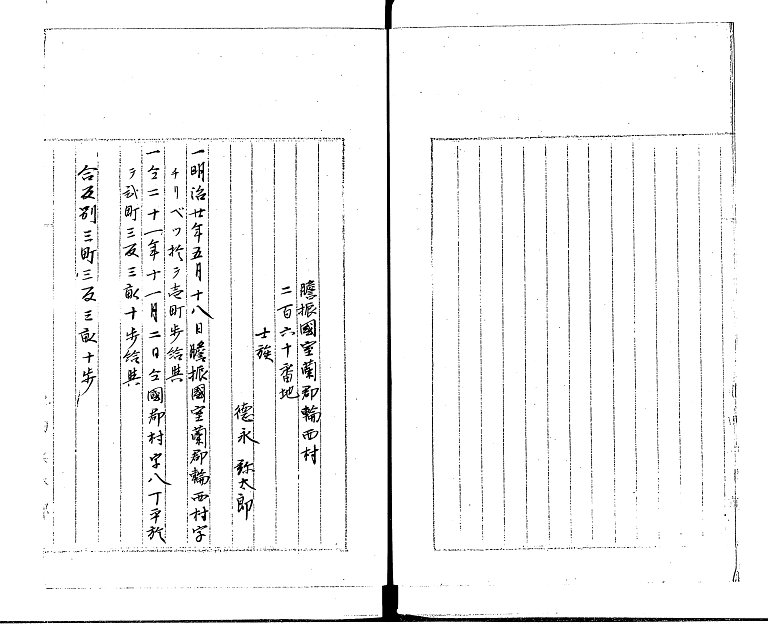 膽振國室蘭郡輪西村
二百六十番地
士族
德永弥太郎
一明治廿年五月十八日膽振國室蘭郡輪西村字
チリベツ於ヲ壱町歩給與
一仝二十一年十一月二日仝國郡村字八丁平於
ヲ弐町三反三畝十歩給與
合反別三町三反三畝十歩